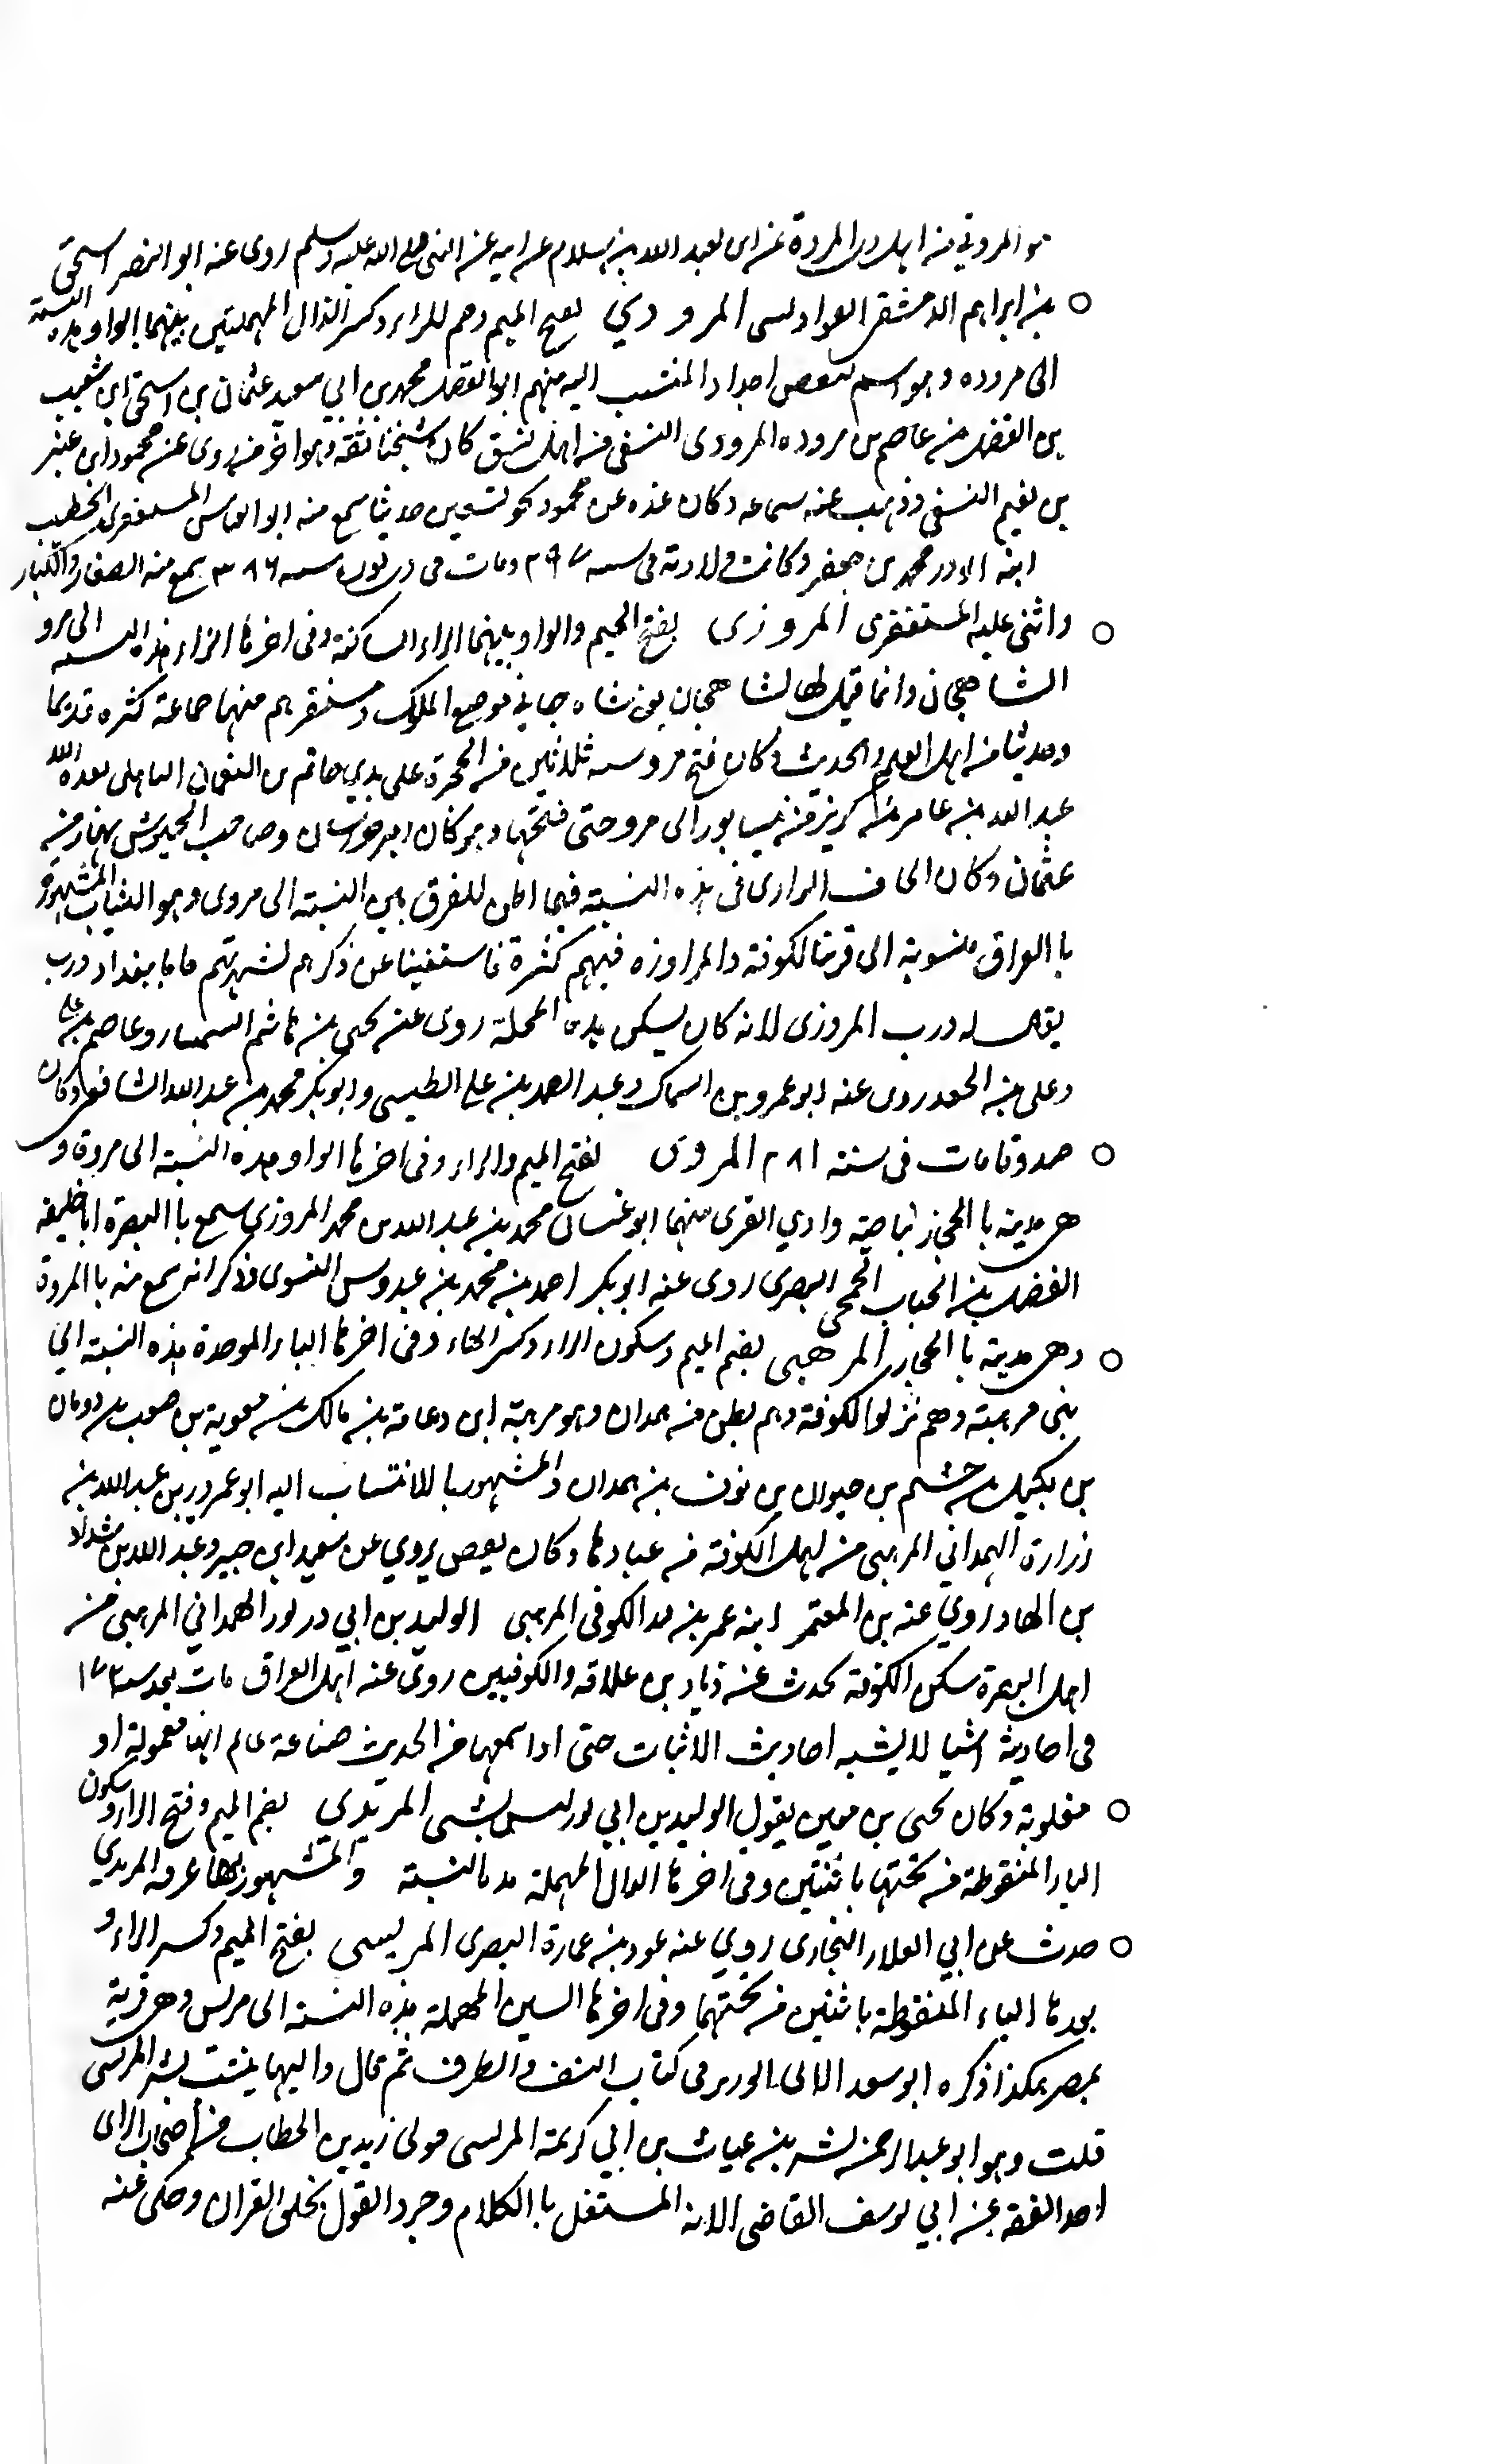 هو المروتي من اهل ذي المروة عن ابى لعبد الله بن سلام عن ابيه عن النبى صلى الله عليه وسلم روى عنه ابو النضر اسحق
بن ابراهيم الدمشقى الفراديسى المرودي بفتح الميم وضم الراء وكسر الذال المهملتين بينهما الواو هذه النسبة
الى مروده وهو اسم لبعض اجداد المنتسب اليه منهم ابو الفضل محمد بن ابي سعيد عثمان بن اسحق ابن شعيب
بن الفضل بن عاصم بن مروده المرودى النسفى من اهل نسف كان شيخنا ثقة وهو اخر من روى عن محمود ابن عنبر
بن نعيم النسفى وذهب عنه سماعه وكان عنده عن محمود نحو تسعين حديثا سمع منه ابو العباس المستغفرى الخطيب
ابنه ابو ذر محمد بن جعفر وكانت ولادته فى سنه ٢٩٧ ومات فى سنه ٣٨٦ سمع منه الصغار والكبار
واثنى عليه المستغفرى المروزى بفتح الميم والواو بينهما الراء الساكنة وفى اخرها الزاء هذه النسبه الى مرو
الشاهجان وانما قيل لها الشاهجان يعنى شاه جانى موضع الملوك ومستقرهم منها جماعة كثره قديما
وحديثا من اهل العلم والحديث وكان فتح مرو سنه ثلاثين من الهجرة على يدي حاتم بن النعمان الباهلى بعده الله
عبد الله بن عامر بن كريز من نيسابور الى مرو حتى فتحها وهو كان امير خراسان وصاحب الجيوش بها زمن
عثمان وكان الحاق الزاى فى هذه النسبة فيما اظن للفرق بين النسبة الى مروى وهو الثياب المشهورة
با العراق منسوبة الى قرية الكوفة والمراوزه فيهم كثرة فاستغنينا عن ذكرهم لشهرتهم فاما ببغداد درب
يقال له درب المروزى لانه كان يسكن هذه المحلة روى عن يحيى بن هاشم السمسار وعاصم بن على
وعلى بن الجعد روى عنه ابو عمرو بن السماك وعبد الصمد بن على الطستى وابو بكر محمد بن عبد الله الشافعى وكان
صدوقا مات فى سنة ٢٨١ المروى بفتح الميم والراء وفى اخرها الواو هذه النسبة الى مروة و
هى مدينة با الحجاز بناحية وادي القرى منهما ابو غسان محمد بن عبد الله بن محمد المروزي سمع با البصرة ابا خليفه
الفضل بن الحباب الجمحى البصرى روى عنه ابو بكر احمد بن محمد بن عبدوس النسوى وذكر انه سمع منه با المروة
وهى مدينة با الحجاز المرهبى بضم الميم وسكون الراء وكسر الهاء وفى اخرها الباء الموحدة هذه النسبة الى
بنى مرهبة وهم نزلوا الكوفة وهم بطن من همدان وهو مرهبة ابن دعامة بن مالك بن معوية بن صعب بن دومان
بن بكيل بن جشم بن حيوان بن نوف بن همدان والمشهور با الانتساب اليه ابو عمر ذر بن عبد الله بن
زرارة الهمداني المرهبى من اهل الكوفة من عبادها وكان يقص يروي عن سعيد ابن جبير وعبد الله بن شداد
بن الهاد روي عنه بن المعتمر ابنه عمر بن ذر الكوفى المرهبى الوليد بن ابي ثور الهمداني المرهبى من
اهل البصرة سكن الكوفة يحدث عن زياد بن علاقه والكوفيين روى عنه اهل العراق مات بعد سنه ١٧٢
فى احاديثه اشيا لا يشبه احاديث الاثبات حتى اذا سمعها من الحديث صناعة علم انها معمولة او
مقلوبة وكان يحيى بن معين يقول الوليد بن ابي ثور ليس بشى المريدي بضم الميم وفتح الراء وسكون
الياء المنقوطة من تحتها باثنتين وفى اخرها الدال المهملة هذا النسبة والمشهور بها عرفه المريدي
حدث على ابي العلاء البخارى روي عنه عود بن عمارة البصرى المريسى بفتح الميم وكسر الراء و
بعدها الياء المنقوطة باثنتين من تحتهما وفى اخرها السين المهملة هذه النسبه الى مريس وهى قرية
بمصر هكذا ذكره ابو سعد الابى الوزير فى كتاب النتف والطرف ثم قال واليها ينسب بشر المريسى
قلت وهو ابو عبد الرحمن بشر بن غياث بن ابي كريمة المريسى مولى زيد بن الخطاب من اصحاب الراى
اخذ الفقه عن ابي يوسف القاضى الا انه المستغل با الكلام وجرد القول بخلق القران وحكى عنه